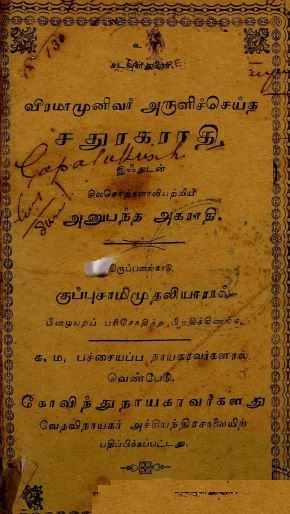 உ
வீரமாமுனிவர் அருளிச்செய்த
சதுரகராதி.
இஃதுடன்
சிலசொற்களாலியற்றிய
அனுபந்த அகராதி.
திருப்பனங்காடு,
குப்புசாமிமுதலியாரால்
பிழையறப் பரிசோதித்த பிரதிக்கிணங்க,
க. ம. பச்சையப்ப நாயகரவர்களால்,
வெண்பேடு,
கோவிந்துநாயகரவர்களது
வேதவிநாயகர் அச்சியந்திரசாலையிற்
பதிப்பிக்கப்பட்டது.